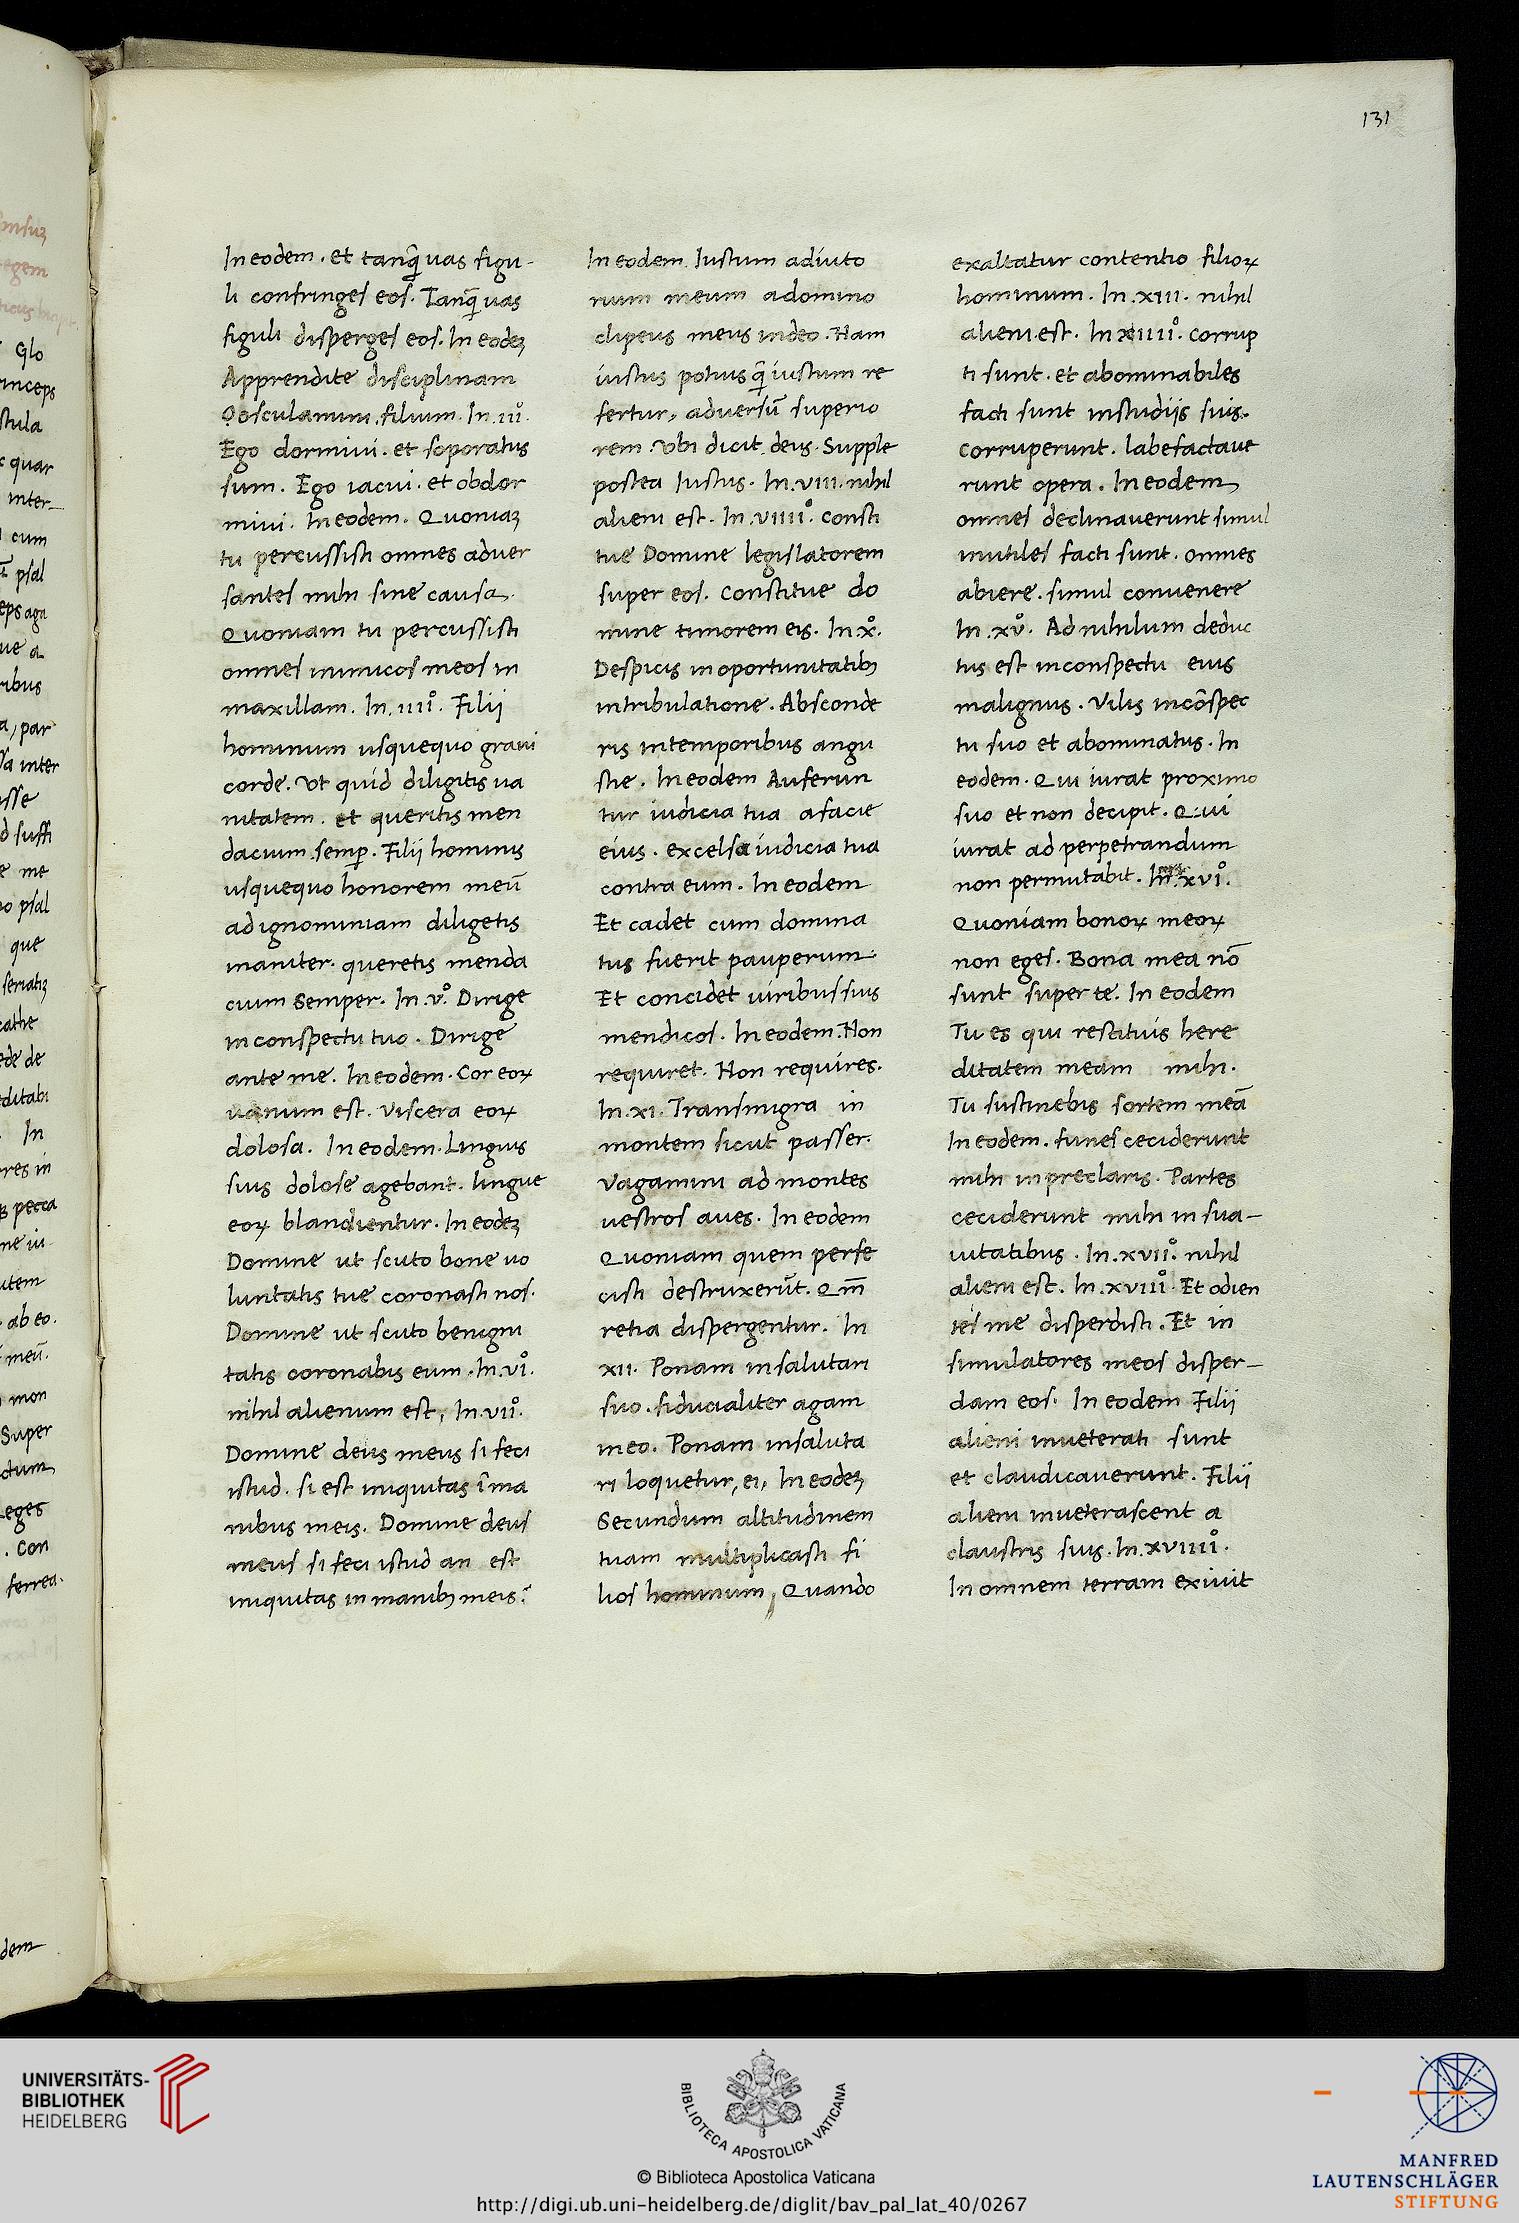 131
In eodem . et tanq̃ uas figu-
li confringes eos. Tanq̃ uas
figuli disperges eos. In eodeʒ
Apprendite disciplinam
Oosculamini filium. In .iii°.
Ego dormiui . et soporatus
sum. Ego iacui . et obdor
miui. In eodem. Quoniaʒ
tu percussisti omnes aduer
santes mihi sine causa.
Quoniam tu percussisti
omnes inimicos meos in
maxillam. In .iiii°. Filij
hominum usquequo graui
corde. Ut quid diligitis ua
nitatem. et queritis men
dacium semp̲. Filij hominis
usquequo honorem meū
ad ignominiam diligetis
inaniter. queretis menda
cium Semper. In .v°. Dirige
in conspectu tuo . Dirige
ante me. In eodem. Cor eoꝝ
uanum est. Viscera eoꝝ
dolosa. In eodem. Linguis
suis dolose agebant. lingue
eoꝝ blandientur. In eodeʒ
Domine ut scuto bone uo
luntatis tue coronasti nos.
Domine ut scuto benigni
tatis coronabis eum. In .vi°.
nihil alienum est, In .vii°.
Domine deus meus si feci
istud. si est iniquitas ī ma
nibus meis. Domine deus
meus si feci istud an est
iniquitas in manibʒ meis?
In eodem. Iustum adiuto
rium meum a domino
clipeus meus in deo. Nam
iustus potius q̃ iustum re
fertur, aduersū superio
rem. Vbi dicit deus. Supple
postea Iustus. In .viii. nihil
alieni est. In .viiii°. consti
tue Domine legislatorem
super eos. Constitue do
mine timorem eis. In .x°.
Despicis in oportunitatibʒ
in tribulatione. Absconde
ris in temporibus angu
stie. In eodem Auferun
tur iudicia tua a facie
eius. excelsa iudicia tua
contra eum. In eodem
Et cadet cum domina
tus fuerit pauperum.
Et concidet uiribus suis
mendicos. In eodem. Non
requiret. Non requires.
In .xi. Transmigra in
montem sicut passer.
Vagamini ad montes
uestros aues. In eodem
Quoniam quem perfe
cisti destruxerūt. Qm̄
retia dispergentur. In
xii. Ponam in salutari
suo. fiducialiter agam
in eo. Ponam in saluta
ri loquetur, ei, In eodeʒ
Secundum altitudinem
tuam multiplicasti fi
lios hominum, Quando
exaltatur contentio filioꝝ
hominum. In .xiii. nihil
alieni est. In xiiii°. Corrup
ti sunt. et abominabiles
facti sunt in studijs suis.
Corruperunt. labefactaue
runt opera. In eodem
omnes declinauerunt simul
inutiles facti sunt. omnes
abiere. simul conuenere
In .xv°. Ad nihilum deduc
tus est in conspectu eius
malignus. Vilis in cōspec
tu suo et abominatus. In
eodem. Qui iurat proximo
suo et non decipit. Qui
iurat ad perpetrandum
non permutabit. In .xvi°.
Quoniam bonoꝝ meoꝝ
non eges. Bona mea nō
sunt super te. In eodem
Tu es qui restituis here
ditatem meam mihi.
Tu sustinebis sortem meā
In eodem. funes ceciderunt
mihi in preclaris. Partes
ceciderunt mihi in sua-
uitatibus. In .xvii°. nihil
alieni est. In .xviii°. Et odien
tes me disperdisti. Et in
simulatores meos disper-
dam eos. In eodem Filij
alieni inueterati sunt
et claudicauerunt. Filij
alieni inueterascent a
claustris suis. In .xviiii°.
In omnem terram exiuit
UNIVERSITÄTS-
BIBLIOTHEK
HEIDELBERG
BIBLIOTECA APOSTOLICA VATICANA
© Biblioteca Apostolica Vaticana
http://digi.ub.uni-heidelberg.de/diglit/bav_pal_lat_40/0267
MANFRED
LAUTENSCHLÄGER
STIFTUNG